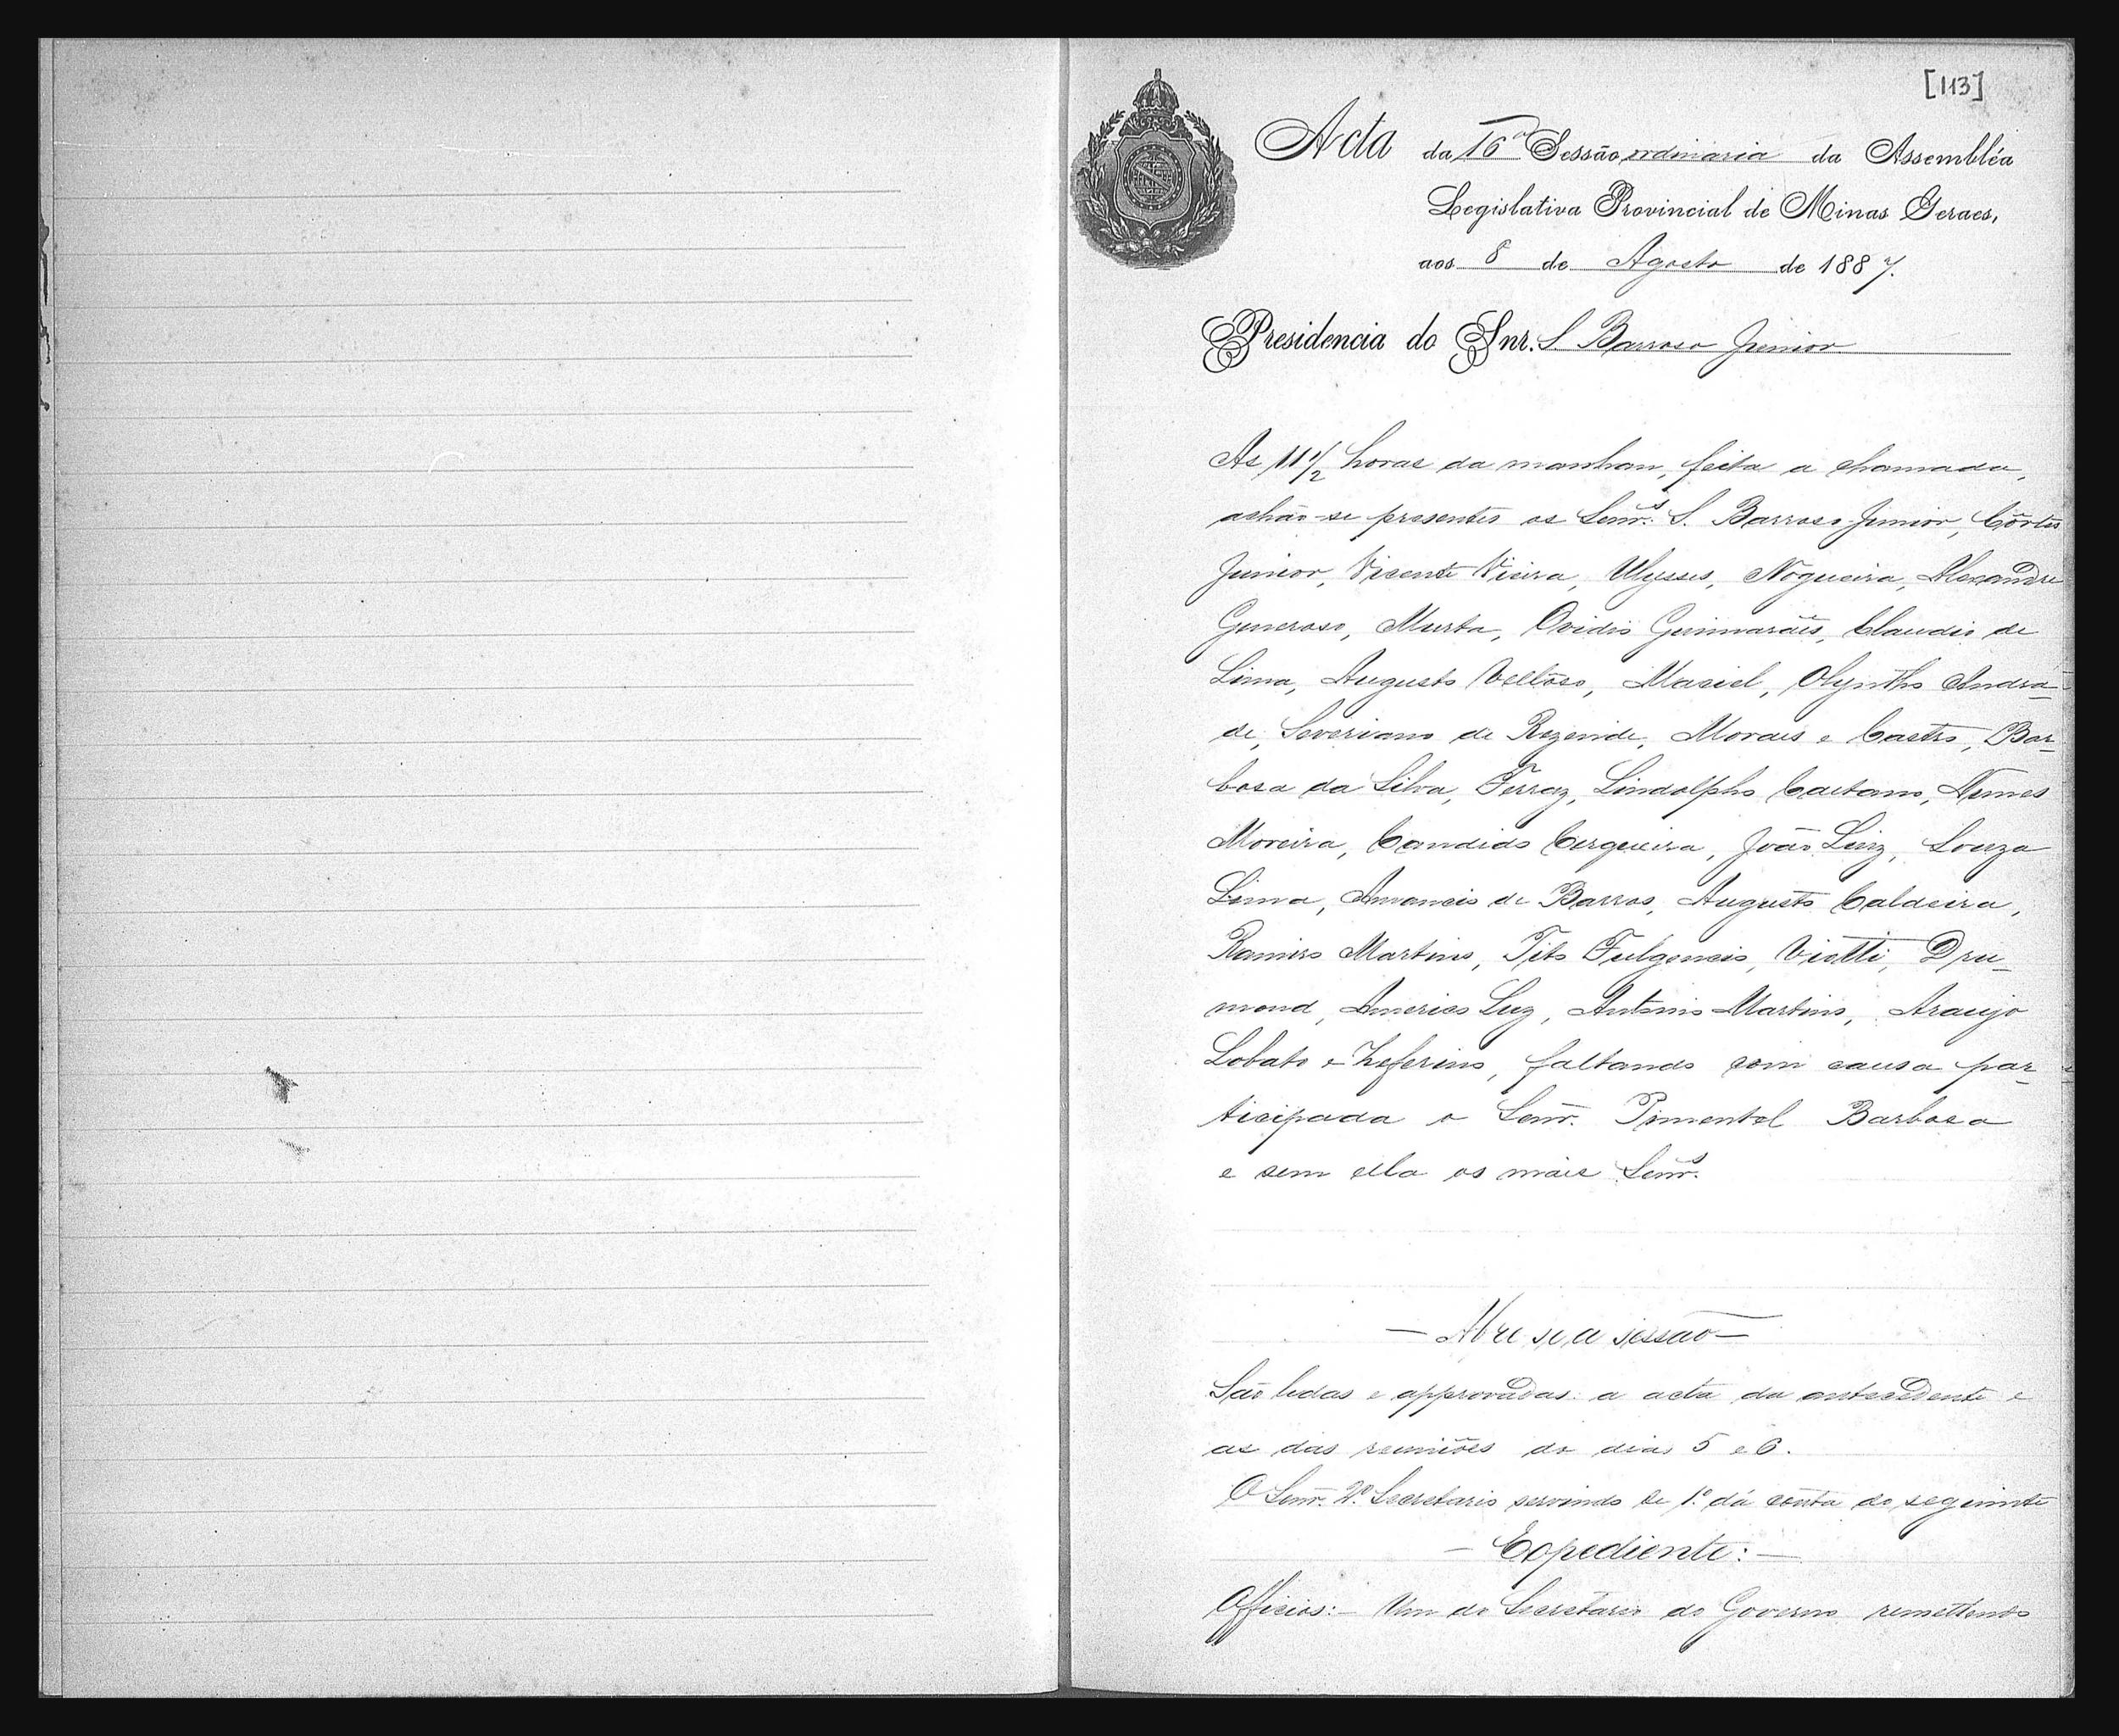 [113]
Acta da 16ª Sessão ordinaria da Assembléa
Legislativa Provincial de Minas Geraes,
aos 8 de Agosto de 1887.
Presidencia do Snr. S. Barroso Junior
As 11 1/2 horas da manhan, feita a chamada,
achão-se presentes os Senr.s S. Barroso Junior, Côrtes
Junior, Vicente Vieira, Ulysses, Nogueira, Alexandre
Generoso, Murta, Ovidio Guimarães, Claudio de
Lima, Augusto Vellôso, Maciel, Olyntho Andra-
de, Severiano de Rezende, Moraes e Castro, Bar-
bosa da Silva, Ferraz, Lindolpho Caetano, Nunes
Moreira, Candido Cerqueira, João Luiz, Souza
Lima, Amancio de Barros, Augusto Caldeira,
Ramiro Martins, Tito Fulgencio, Viotti, Dru-
mond, Americo Luz, Antonio Martins, Araujo
Lobato e Zeferino, faltando com causa par-
ticipada o Senr. Pimentel Barbosa
e sem ella os mais Senr.s
— Abre se a sessão —
São lidas e approvadas a acta da antecedente e
as das reuniões do dias 5 e 6.
O Senr. 2º Secretario servindo de 1º dá conta do seguinte
— Expediente: —
Officios: — Um do Secretario do Governo remettendo